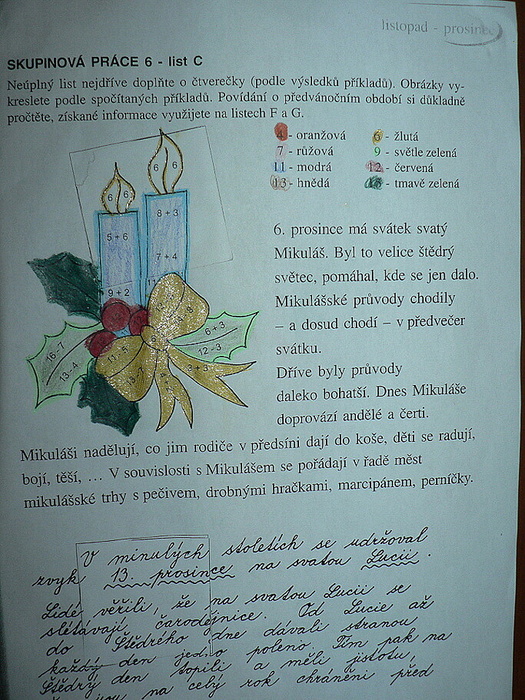 listopad - prosinec
SKUPINOVÁ PRÁCE 6 - list C
Neúplný list nejdříve doplňte o čtverečky (podle výsledků příkladů). Obrázky vy-
kreslete podle spočítaných příkladů. Povídání o předvánočním období si důkladně
pročtěte, získané informace využijete na listech F a G.
4 - oranžová
6 - žlutá
7 - růžová
9 - světle zelená
11 - modrá
12 - červená
13 - hnědá
- tmavě zelená
6 6
6 6
8 + 3
5 + 6
7 + 4
9 + 2
6 + 3
12 - 3
16 - 7
13 - 4
3 + 3
6. prosince má svátek svatý
Mikuláš. Byl to velice štědrý
světec, pomáhal, kde se jen dalo.
Mikulášské průvody chodily
– a dosud chodí – v předvečer
svátku.
Dříve byly průvody
daleko bohatší. Dnes Mikuláše
doprovází andělé a čerti.
Mikuláši nadělují, co jim rodiče v předsíni dají do koše, děti se radují,
bojí, těší, ... V souvislosti s Mikulášem se pořádají v řadě měst
mikulášské trhy s pečivem, drobnými hračkami, marcipánem, perníčky.
V minulých stoletích se udržoval
zvyk 13. prosince na svatou Lucii.
Lidé věřili, že na svatou Lucii se
slétávají čarodějnice. Od Lucie až
do Štědrého dne dávali stranou
každý den jedno poleno. Tím pak na
Štědrý den topili a měli jistotu,
na celý rok chráněni před